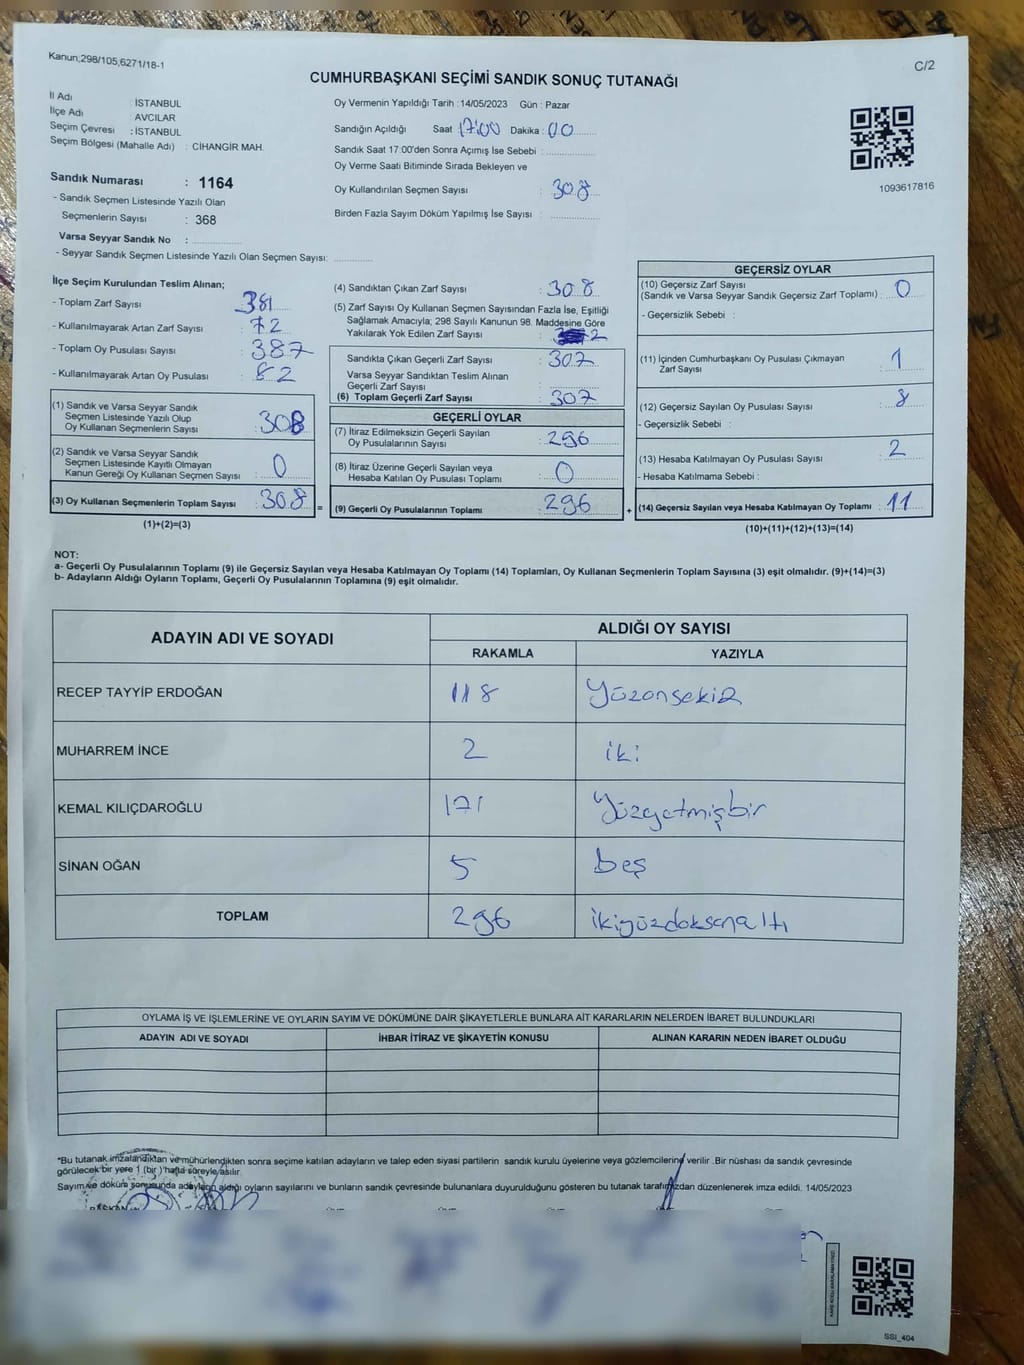 Kanun;298/105,6271/18-1
C/2
CUMHURBAŞKANI SEÇİMİ SANDIK SONUÇ TUTANAĞI
İl Adı : İSTANBUL
İlçe Adı AVCILAR
Seçim Çevresi : İSTANBUL
Seçim Bölgesi (Mahalle Adı) : CİHANGİR MAH.
Sandık Numarası : 1164
- Sandık Seçmen Listesinde Yazılı Olan
Seçmenlerin Sayısı : 368
Varsa Seyyar Sandık No :
- Seyyar Sandık Seçmen Listesinde Yazılı Olan Seçmen Sayısı:
Oy Vermenin Yapıldığı Tarih : 14/05/2023 Gün : Pazar
Sandığın Açıldığı Saat 17:00 Dakika : 00
Sandık Saat 17:00'den Sonra Açımış İse Sebebi :
Oy Verme Saati Bitiminde Sırada Bekleyen ve
Oy Kullandırılan Seçmen Sayısı : 308
Birden Fazla Sayım Döküm Yapılmış İse Sayısı :
1093617816
İlçe Seçim Kurulundan Teslim Alınan;
- Toplam Zarf Sayısı 381
- Kullanılmayarak Artan Zarf Sayısı : 72
- Toplam Oy Pusulası Sayısı : 387
- Kullanılmayarak Artan Oy Pusulası : 82
(1) Sandık ve Varsa Seyyar Sandık
Seçmen Listesinde Yazılı Olup
Oy Kullanan Seçmenlerin Sayısı : 308
(2) Sandık ve Varsa Seyyar Sandık
Seçmen Listesinde Kayıtlı Olmayan
Kanun Gereği Oy Kullanan Seçmen Sayısı : 0
(3) Oy Kullanan Seçmenlerin Toplam Sayısı : 308 =
(1)+(2)=(3)
(4) Sandıktan Çıkan Zarf Sayısı : 308
(5) Zarf Sayısı Oy Kullanan Seçmen Sayısından Fazla İse, Eşitliği
Sağlamak Amacıyla; 298 Sayılı Kanunun 98. Maddesine Göre
Yakılarak Yok Edilen Zarf Sayısı : 2
Sandıkta Çıkan Geçerli Zarf Sayısı : 307
Varsa Seyyar Sandıktan Teslim Alınan
Geçerli Zarf Sayısı :
(6) Toplam Geçerli Zarf Sayısı : 307
GEÇERLİ OYLAR
(7) İtiraz Edilmeksizin Geçerli Sayılan
Oy Pusulalarının Sayısı : 296
(8) İtiraz Üzerine Geçerli Sayılan veya
Hesaba Katılan Oy Pusulası Toplamı : 0
(9) Geçerli Oy Pusulalarının Toplamı : 296 +
GEÇERSİZ OYLAR
(10) Geçersiz Zarf Sayısı
(Sandık ve Varsa Seyyar Sandık Geçersiz Zarf Toplamı) : 0
- Geçersizlik Sebebi :
(11) İçinden Cumhurbaşkanı Oy Pusulası Çıkmayan
Zarf Sayısı : 1
(12) Geçersiz Sayılan Oy Pusulası Sayısı : 8
- Geçersizlik Sebebi :
(13) Hesaba Katılmayan Oy Pusulası Sayısı : 2
- Hesaba Katılmama Sebebi :
(14) Geçersiz Sayılan veya Hesaba Katılmayan Oy Toplamı : 11
(10)+(11)+(12)+(13)=(14)
NOT:
a- Geçerli Oy Pusulalarının Toplamı (9) ile Geçersiz Sayılan veya Hesaba Katılmayan Oy Toplamı (14) Toplamları, Oy Kullanan Seçmenlerin Toplam Sayısına (3) eşit olmalıdır. (9)+(14)=(3)
b- Adayların Aldığı Oyların Toplamı, Geçerli Oy Pusulalarının Toplamına (9) eşit olmalıdır.
ADAYIN ADI VE SOYADI
ALDIĞI OY SAYISI
RAKAMLA YAZIYLA
RECEP TAYYİP ERDOĞAN 118 Yüzonsekiz
MUHARREM İNCE 2 iki
KEMAL KILIÇDAROĞLU 171 Yüzyetmişbir
SİNAN OĞAN 5 beş
TOPLAM 296 ikiyüzdoksanaltı
OYLAMA İŞ VE İŞLEMLERİNE VE OYLARIN SAYIM VE DÖKÜMÜNE DAİR ŞİKAYETLERLE BUNLARA AİT KARARLARIN NELERDEN İBARET BULUNDUKLARI
ADAYIN ADI VE SOYADI İHBAR İTİRAZ VE ŞİKAYETİN KONUSU ALINAN KARARIN NEDEN İBARET OLDUĞU
*Bu tutanak imzalandıktan ve mühürlendikten sonra seçime katılan adayların ve talep eden siyasi partilerin sandık kurulu üyelerine veya gözlemcilerine verilir .Bir nüshası da sandık çevresinde
görülecek bir yere 1 (bir ) hafta süreyle asılır.
Sayım ve döküm sonusunda adayların aldığı oyların sayılarını ve bunların sandık çevresinde bulunanlara duyurulduğunu gösteren bu tutanak tarafımızdan düzenlenerek imza edildi. 14/05/2023
BAŞKAN
SSI_404